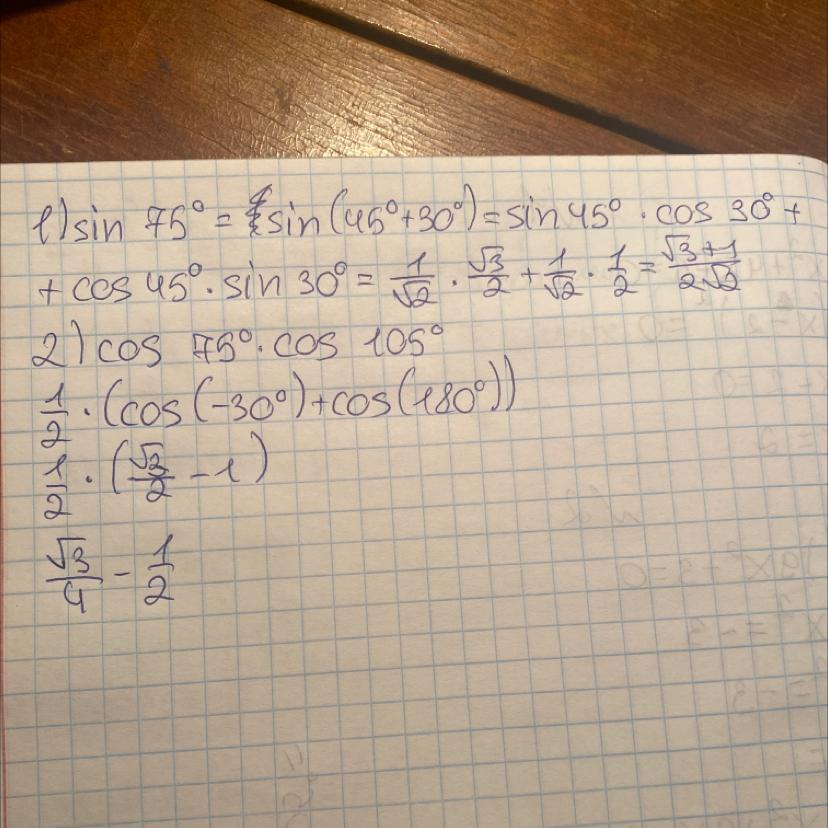 1) sin 75° = sin(45°+30°) = sin 45° · cos 30° +
+ cos 45° · sin 30° = 1/√2 · √3/2 + 1/√2 · 1/2 = √3+1/2√2
2) cos 75° · cos 105°
1/2 · (cos(-30°)+cos(180°))
1/2 · (√3/2 - 1)
√3/4 - 1/2